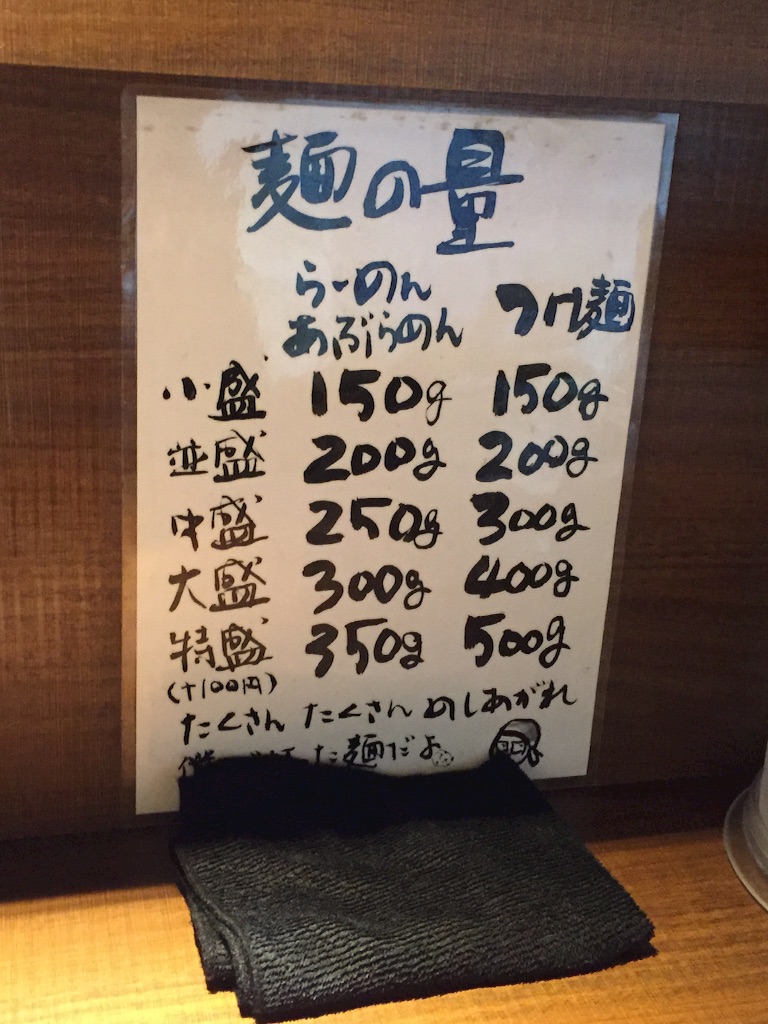 麺の量
らーめん
あぶらめん
つけ麺
小盛 150g 150g
並盛 200g 200g
中盛 250g 300g
大盛 300g 400g
特盛 350g 500g
(+100円)
たくさん たくさん めしあがれ
た麺だよ。